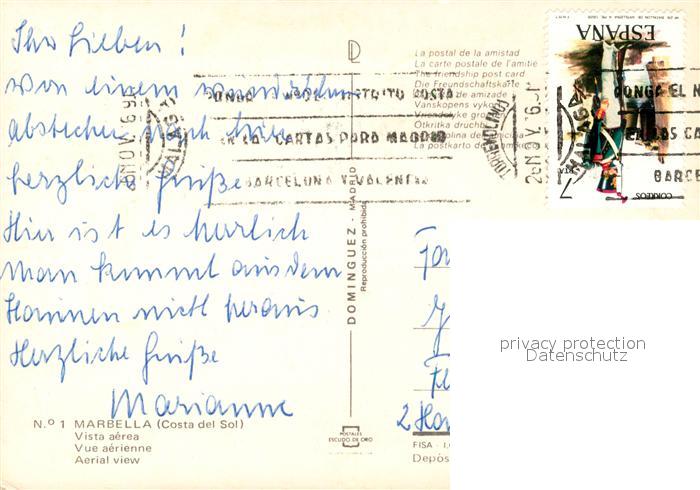 Ihr Lieben!
von einem
abstecher nach hier
herzliche Grüße
Hier ist es herrlich
man kommt aus dem
Staunen nicht heraus
Herzliche Grüße
Marianne
N.º 1 MARBELLA (Costa del Sol)
Vista aérea
Vue aérienne
Aerial view
D
DOMINGUEZ - MADRID
Reproducción prohibida
POSTALES
ESCUDO DE ORO
La postal de la amistad
La carte postale de l'amitié
The friendship post card
Die Freundschaftskarte
de amizade
Vanskapens
Vriendelyke
Otkritka druchbi
La postkarto de
PONGA EL DISTRITO POSTAL
EN LAS CARTAS PARA MADRID
BARCELONA Y VALENCIA
MALAGA
TORREMOLINOS
26 NOV.
ESPAÑA
7
PTA
CORREOS
PONGA EL
EN LAS CA
BARCE
2 Ha
FISA - I.
Depós
privacy protection
Datenschutz